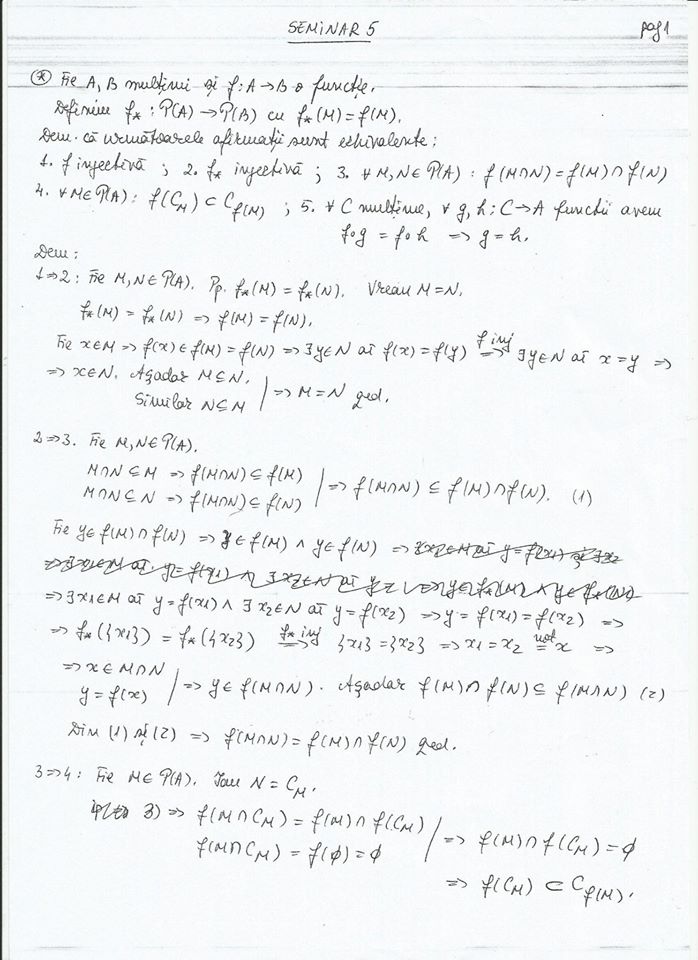 SEMINAR 5 pag 1
* Fie A, B mulțimi și f: A → B o funcție.
Definim f_* : P(A) → P(B) cu f_*(M) = f(M).
Dem. că următoarele afirmații sunt echivalente:
1. f injectivă ; 2. f_* injectivă ; 3. ∀ M, N ∈ P(A) : f(M∩N) = f(M) ∩ f(N)
4. ∀ M ∈ P(A) : f(C_M) ⊂ C_f(M) ; 5. ∀ C mulțime, ∀ g, h : C → A funcții avem
f∘g = f∘h ⇒ g = h.
Dem :
1⇒2 : Fie M, N ∈ P(A). Pp. f_*(M) = f_*(N). Vreau M = N.
f_*(M) = f_*(N) ⇒ f(M) = f(N).
Fie x∈M ⇒ f(x) ∈ f(M) = f(N) ⇒ ∃ y∈N aî f(x) = f(y) f inj ⇒ ∃ y∈N aî x = y ⇒
⇒ x∈N. Așadar M ⊆ N.
Similar N ⊆ M | ⇒ M = N qed.
2⇒3. Fie M, N ∈ P(A).
M∩N ⊆ M ⇒ f(M∩N) ⊆ f(M)
M∩N ⊆ N ⇒ f(M∩N) ⊆ f(N) | ⇒ f(M∩N) ⊆ f(M) ∩ f(N). (1)
Fie y∈ f(M) ∩ f(N) ⇒ y ∈ f(M) ∧ y ∈ f(N) ⇒
⇒ ∃ x1∈M aî y = f(x1) ∧ ∃ x2∈N aî y = f(x2) ⇒ y = f(x1) = f(x2) ⇒
⇒ f_*({x1}) = f_*({x2}) f_* inj ⇒ {x1} = {x2} ⇒ x1 = x2 not = x ⇒
⇒ x ∈ M∩N
y = f(x) | ⇒ y ∈ f(M∩N). Așadar f(M) ∩ f(N) ⊆ f(M∩N) (2)
Din (1) și (2) ⇒ f(M∩N) = f(M) ∩ f(N) qed.
3⇒4 : Fie M ∈ P(A). Iau N = C_M.
3) ⇒ f(M∩C_M) = f(M) ∩ f(C_M)
f(M∩C_M) = f(∅) = ∅ | ⇒ f(M) ∩ f(C_M) = ∅
⇒ f(C_M) ⊂ C_f(M).